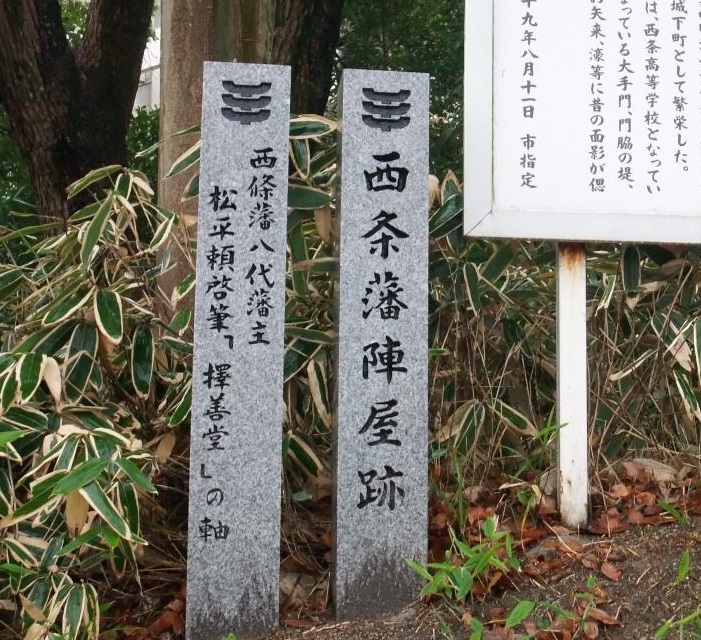 城下町として繁栄した。
は、西条高等学校となってい
なっている大手門、門脇の堤、
矢来、濠等に昔の面影が偲
九年八月十一日　市指定
西条藩陣屋跡
西條藩八代藩主
松平頼啓筆「擇善堂」の軸